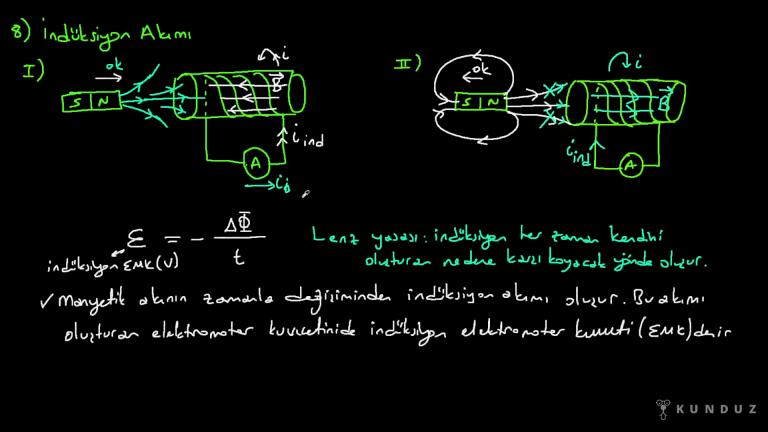 8) İndüksiyon Akımı
I)
ok
i
S N
B
i ind
A
i
II)
ok
i
S N
B
i ind
A
ε = - ΔΦ / t
indüksiyon EMK(V)
Lenz yasası: indüksiyon her zaman kendini
oluşturan nedene karşı koyacak yönde oluşur.
✓ Manyetik akının zamanla değişiminden indüksiyon akımı oluşur. Bu akımı
oluşturan elektromotor kuvvetinide indüksiyon elektromotor kuvveti (EMK) denir
KUNDUZ